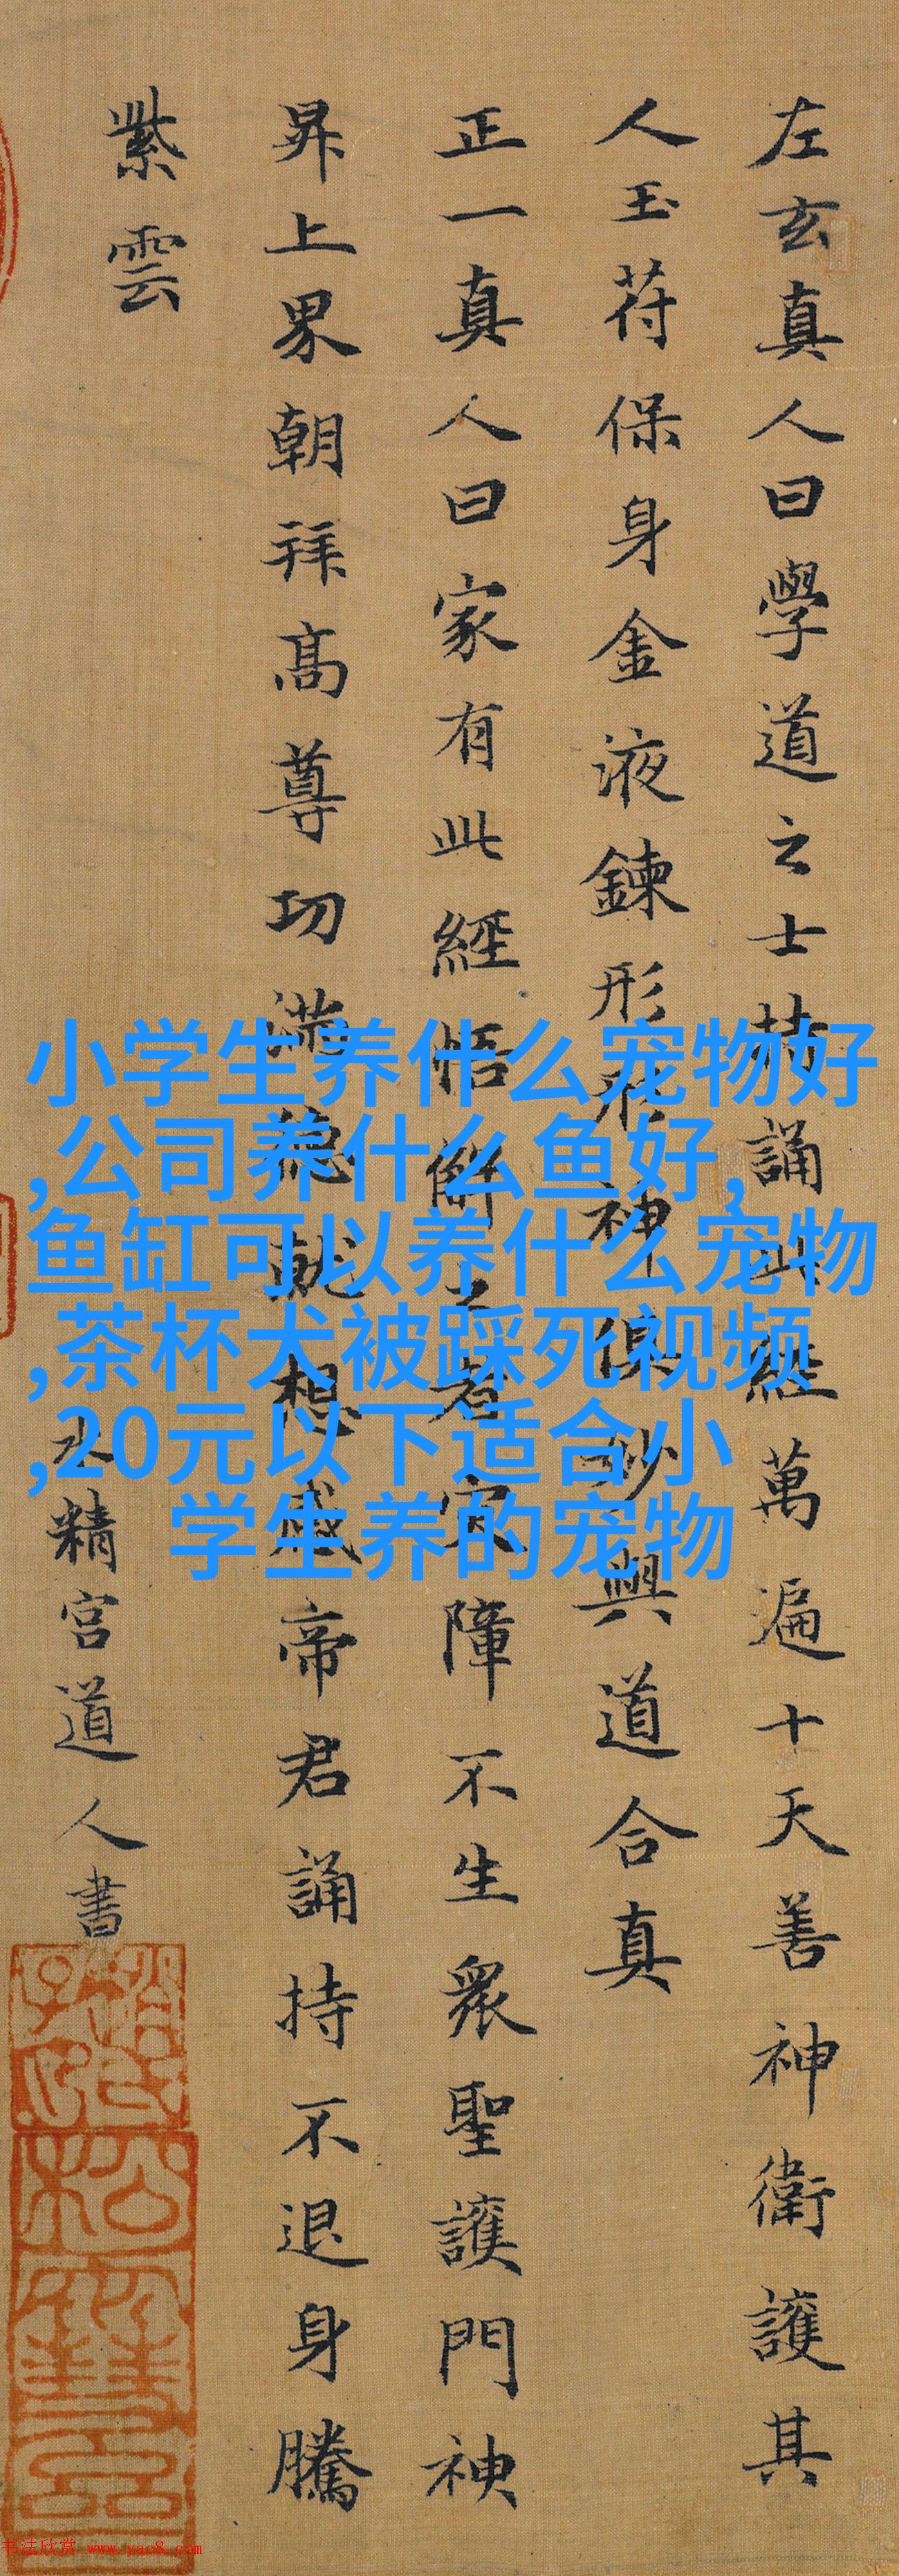 左玄真人曰學道之士若誦此經萬遍十天善神衛護其
人玉苻保身金液鍊形形神俱妙與道合真
正一真人曰家有此經悟解之者灾障不生衆聖護門神
昇上界朝拜髙尊功滿德就想感帝君誦持不退身騰
紫雲
水精宮道人書
小学生养什么宠物好
,公司养什么鱼好,
鱼缸可以养什么宠物
,茶杯犬被踩死视频
,20元以下适合小
学生养的宠物
书法欣赏 www.yac8.com